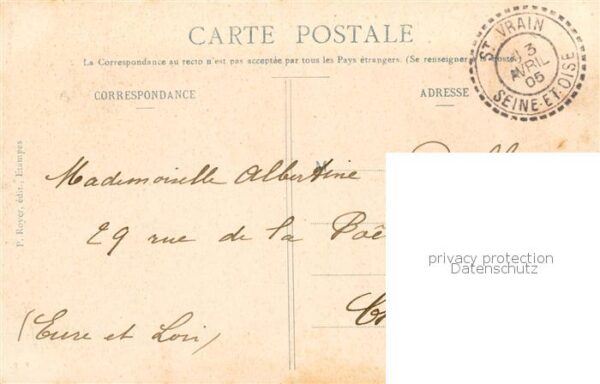 CARTE POSTALE
La Correspondance au recto n'est pas acceptée par tous les Pays étrangers. (Se renseigner à la poste.)
CORRESPONDANCE
ADRESSE
ST VRAIN
3
AVRIL
05
SEINE-ET-OISE
M
Mademoiselle Albertine
29 rue de la
(Eure et Loir)
P. Royer, édit., Etampes
privacy protection
Datenschutz